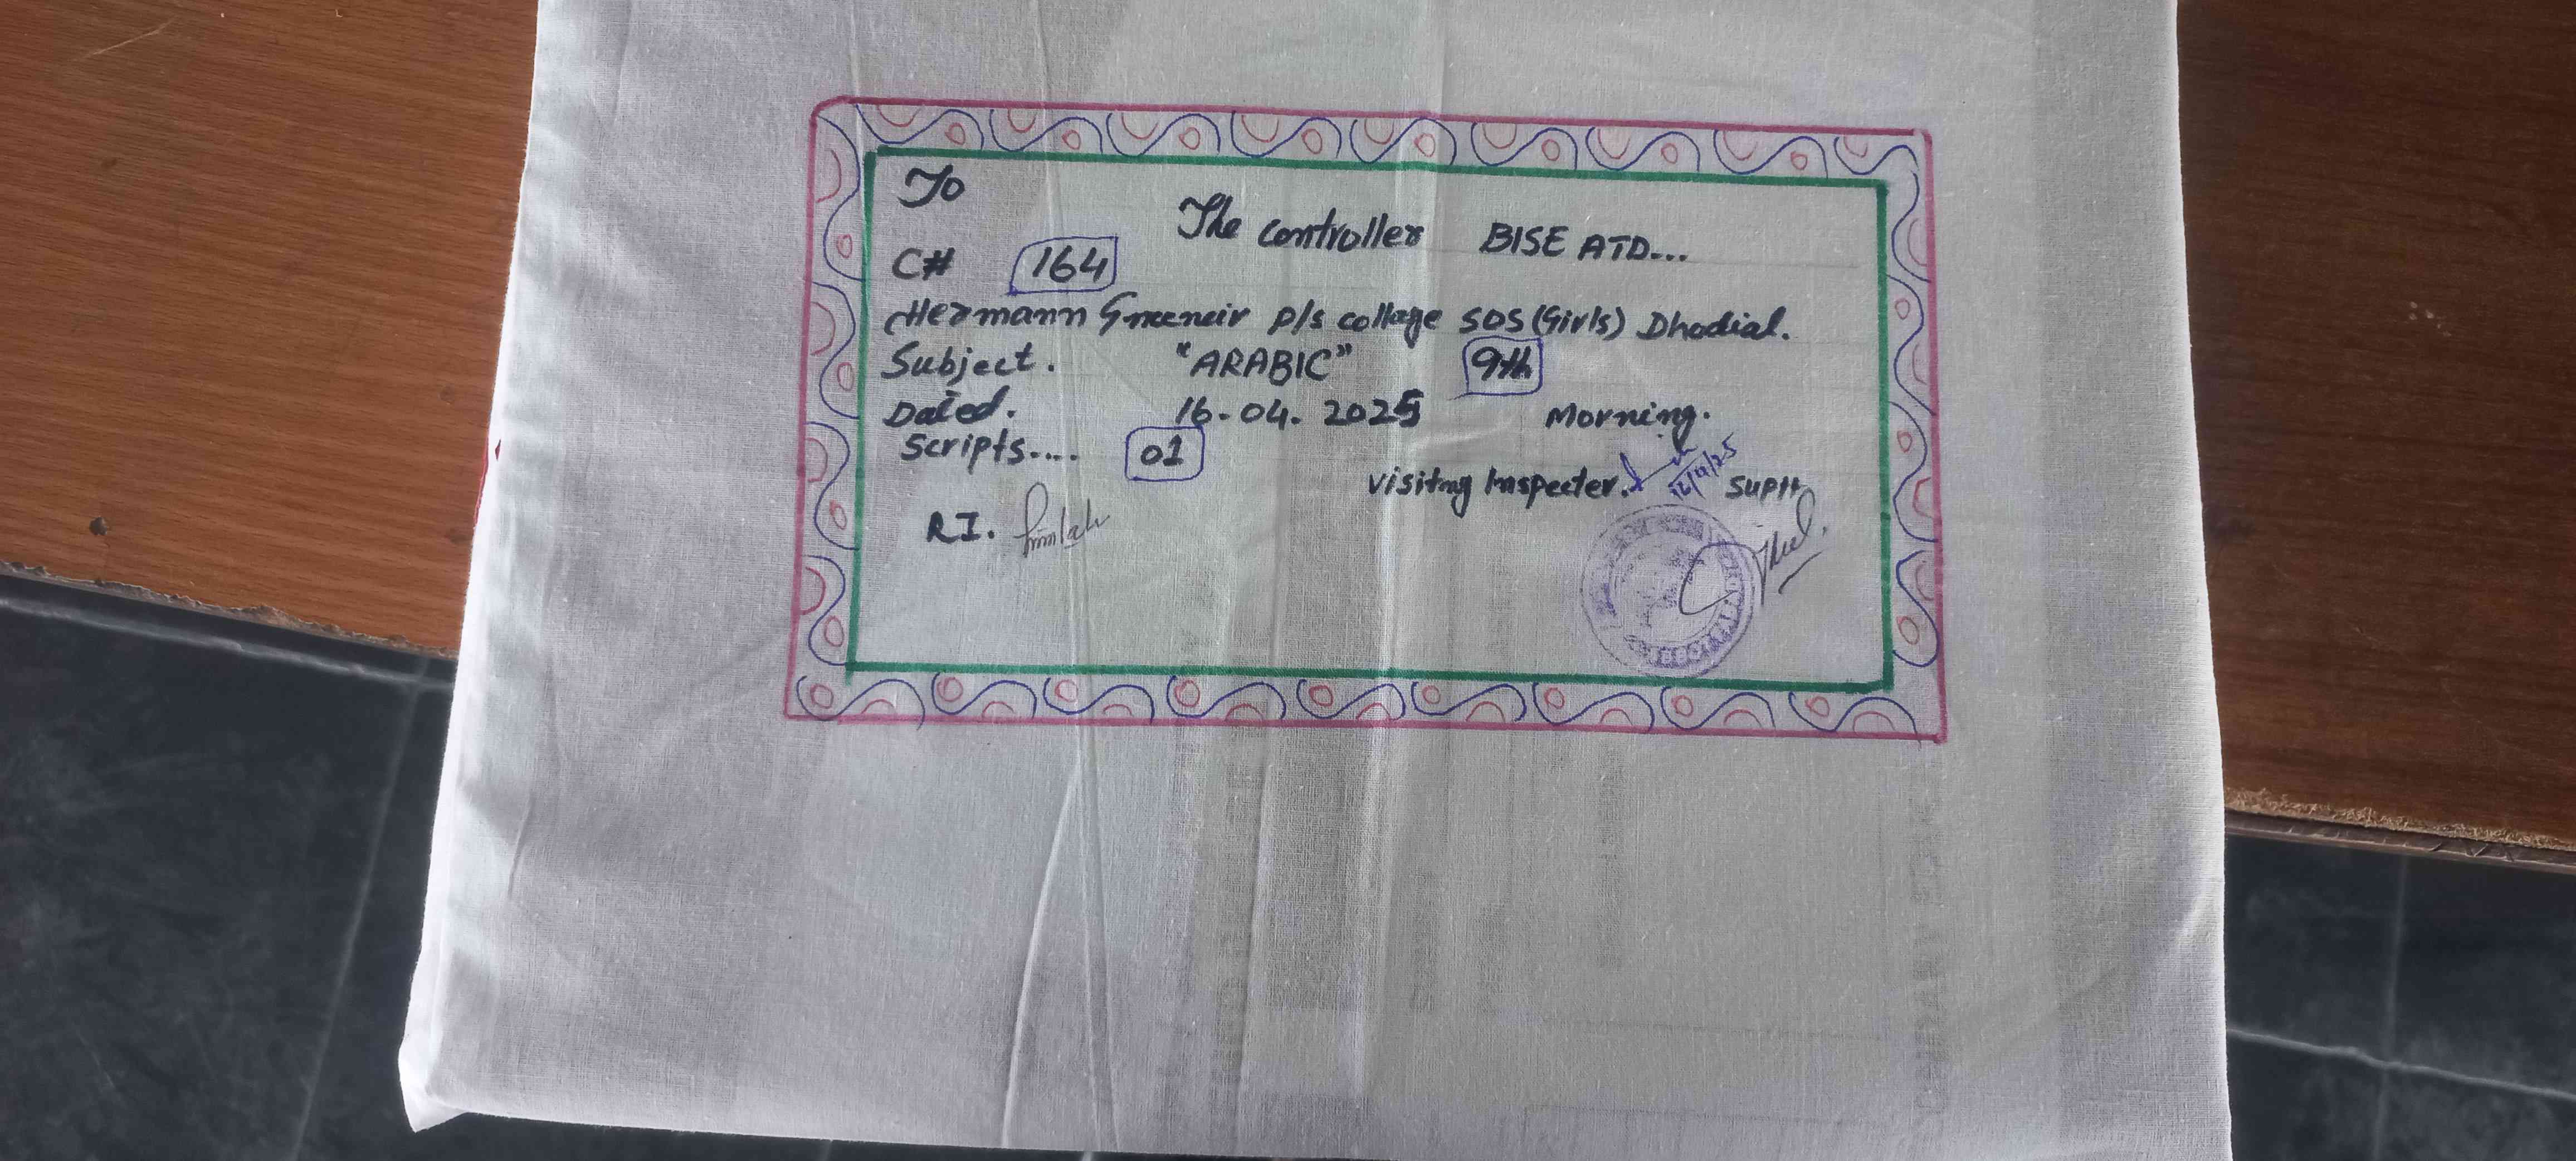 To
The controller BISE ATD...
C# 164
Hermann Gmeneir p/s collage SOS (Girls) Dhodial.
Subject. "ARABIC" 9th
Dated. 16-04. 2025 Morning.
Scripts.... 01
Visitng Inspecter. 16/4/25 Suptt
R.I.